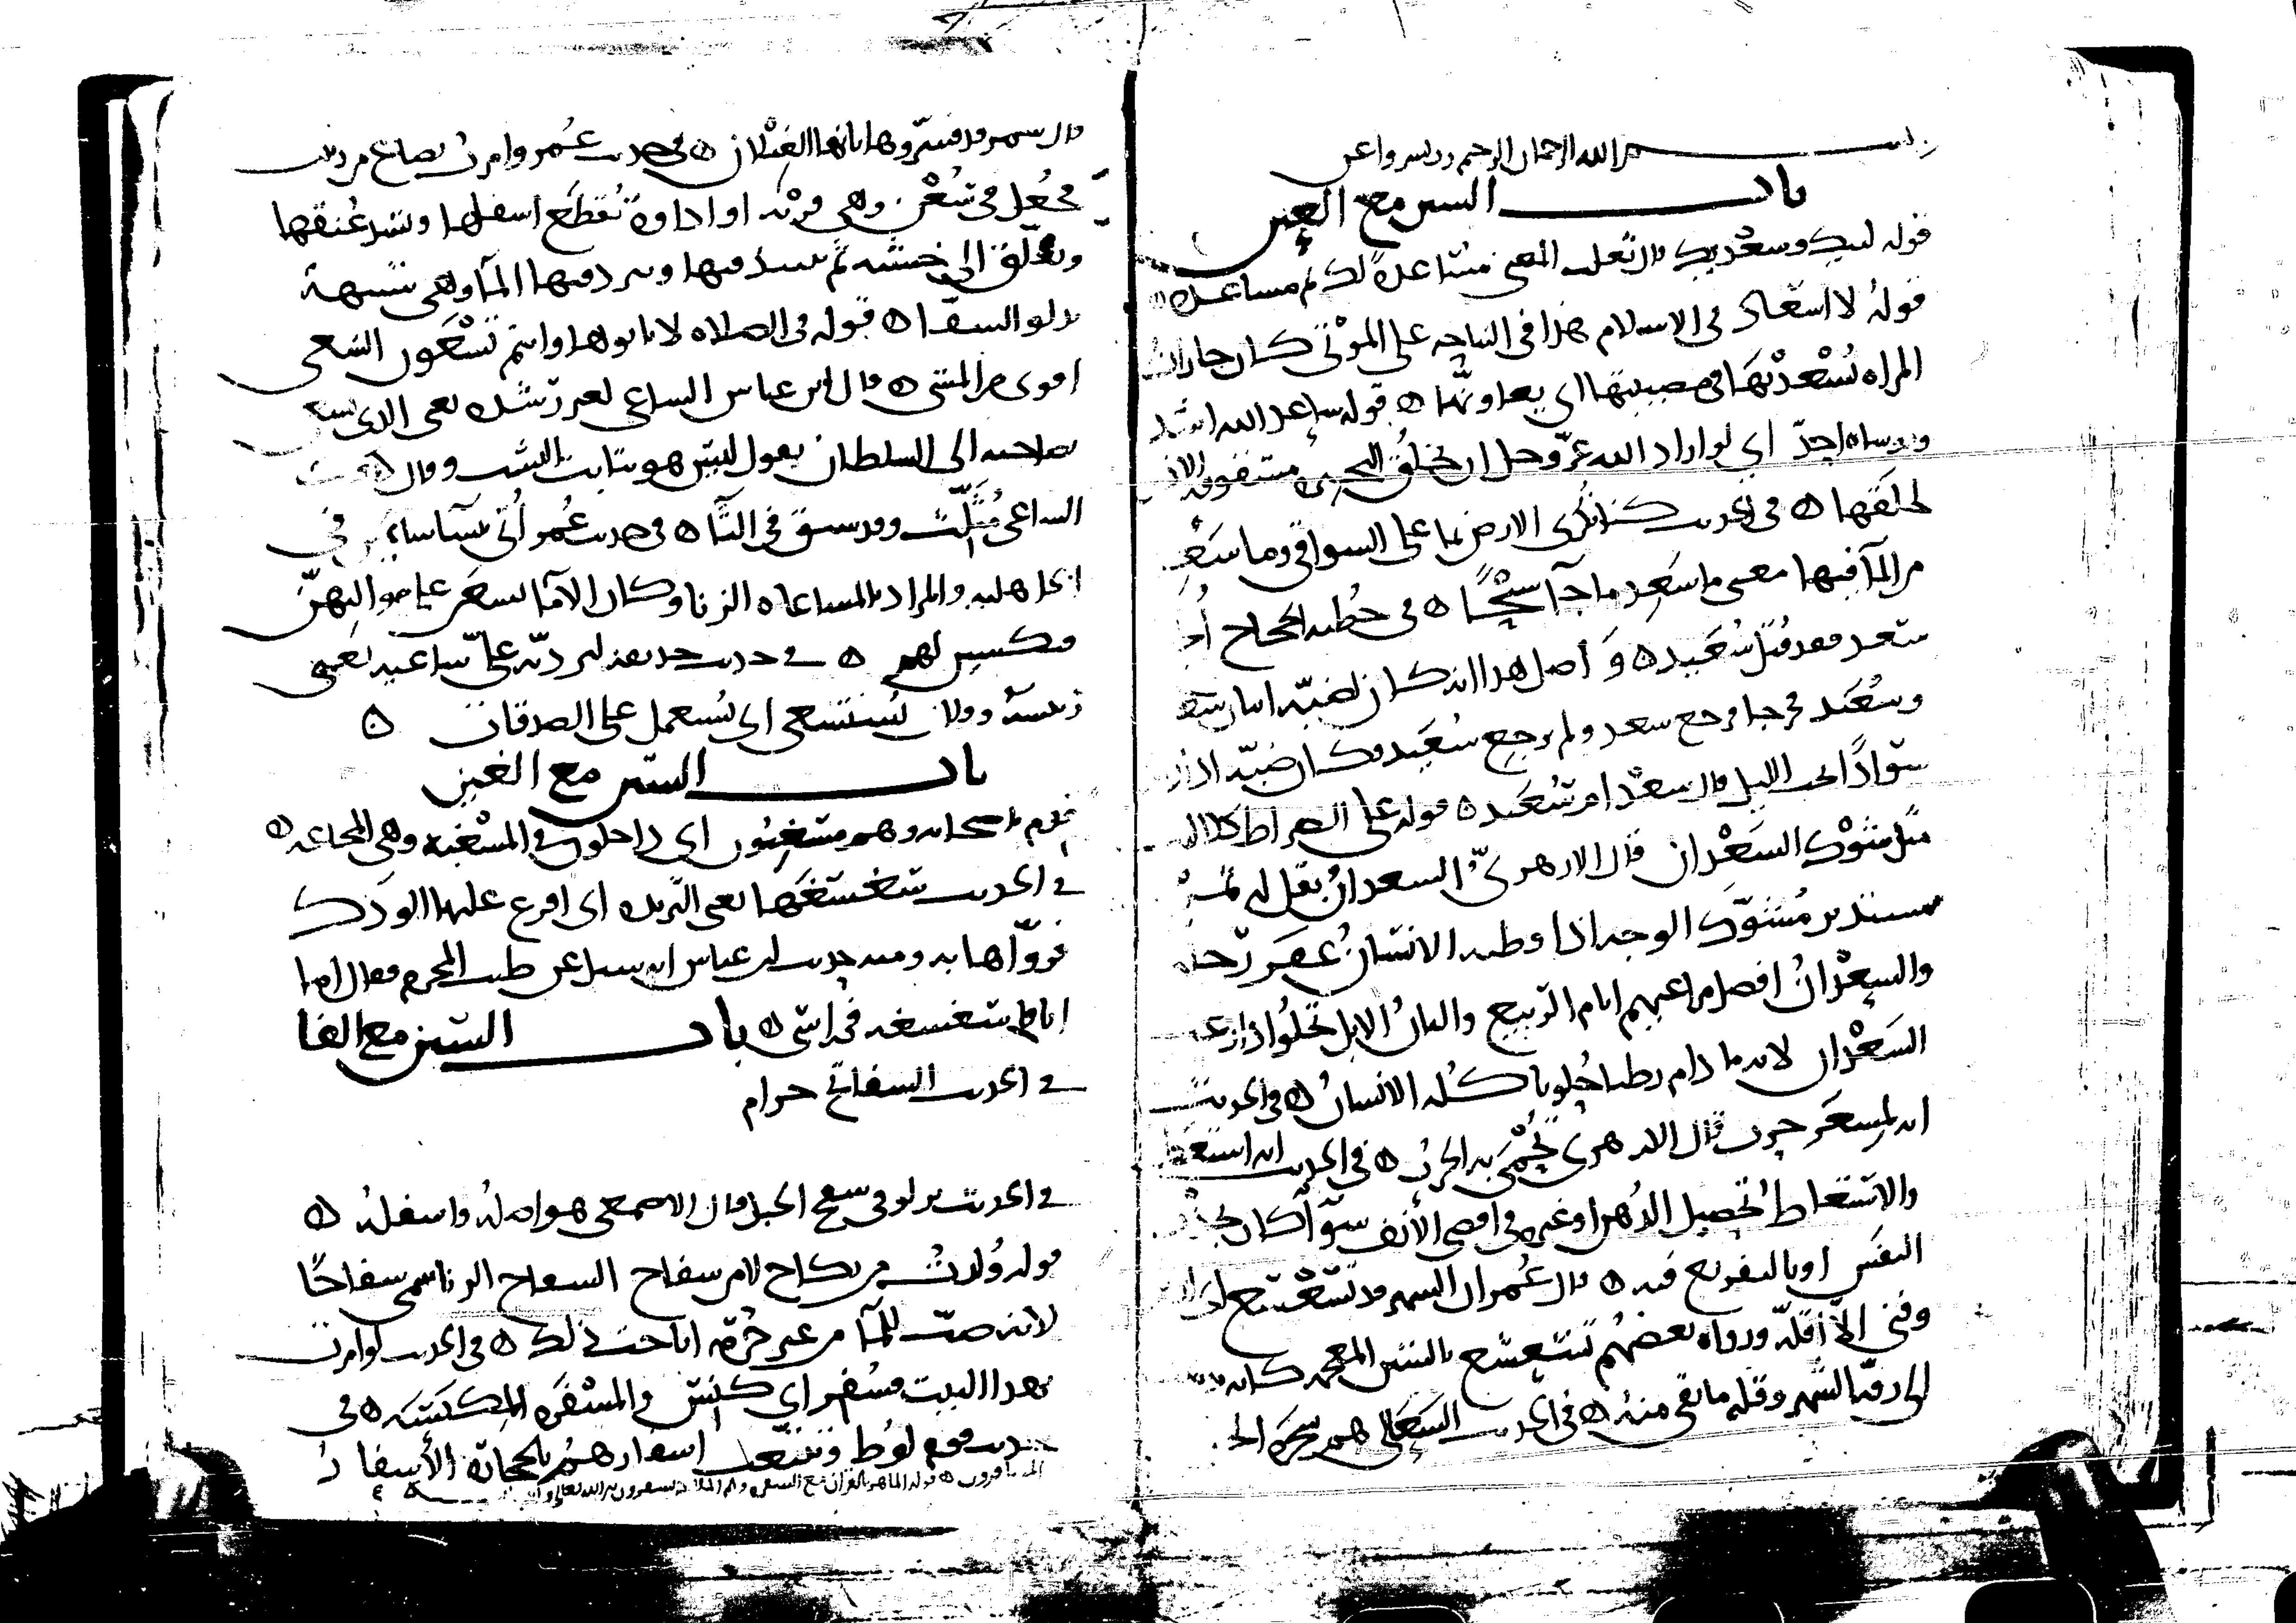 بسم الله الرحمان الرحيم رب يسر واعن
باب السين مع العين
قوله لبيك وسعديك قال ثعلب المعنى مساعدة لك ثم مساعدة
قوله لا اسعاد في الاسلام هذا في النياحة على الموتى كان جارات
المراه تسعدنها في مصيبتها اي يعاونها ه قوله ساعد الله اشد
وموساه احد اي لو اراد الله عز وجل ان يخلق البحيرة مشقوقة الاذن
لخلقها ه في الحديث كنا نكري الارض بما على السواقي وما سعد
من المآ فيها معنى ما سعد ما جآ سيحا ه في خطبه الحجاج انج
سعد فقد قتل سعيد ه و أصل هذا انه كان لضبه ابنان سعد
وسعيد فخرجا فرجع سعد ولم يرجع سعيد فكان ضبه اذا راى
سوادا تحت الليل قال سعد ام سعيد ه قوله على الصراط كلاليب
مثل شوك السعدان قال الازهري السعدان بقل له ثمر
مستدير مشوك الوجه اذا وطئه الانسان عقر رجله
والسعدان افضل مراعيهم ايام الربيع والبان الابل تحلوا اذا رعت
السعدان لانه ما دام رطبا حلو ياكله الانسان ه في الحديث
انه لمسعر حرب قال الازهري تحمى به الحرب ه في الحديث انه استعط
والاستعاط تحصيل الدهن او غيره في اقصى الأنف سوآ كان بجذب
النفس او بالتفريغ فيه ه قال عمر ان الشهر قد تسعسع اي ادبر
وفني الا اقله ورواه بعضهم تشعشع بالشين المعجمه كانه ذهب
الى رقه الشهر وقله ما بقي منه ه في الحديث السعالي هم سحرة الجن
قال شمر وقد فسروها بانها الغيلان ه في حديث عمر وامرت بصاع من زبيب
فجعل في سعن وهي قربة او اداوة تقطع اسفلها وتشد عنقها
وتعلق الى خشبه ثم ينبذ فيها ويبرد فيها المآ وهي شبيهة
بدلو السقا ه قوله في الصلاه لا تاتوها وانتم تسعون السعي
اقوى من المشي ه قال ابن عباس الساعي لغير رشده يعني الذي يسعى
بصاحبه الى السلطان يقول ليس هو بثابت النسب وقال كعب
الساعي مثلث وقد سبق في الثا ه في حديث عمر أتي بنسآ ساعين في
الجاهليه والمراد بالمساعاه الزنا وكان الامآ يسعين على مواليهن
فيكسبن لهم ه في حديث حذيفه ليردنه علي ساعيه يعني
رئيسه وفلان يستسعى اي يستعمل على الصدقات ه
باب السين مع الغين
قدم باصحابه وهم مسغبون اي داخلون في المسغبه وهي المجاعه ه
في الحديث سغسغها يعني الثريده اي افرغ عليها الودك
فروّاها به ومنه حديث ابن عباس انه سئل عن طيب المحرم فقال اما
انا فاسغسغه في راسي ه باب السين مع الفا
في الحديث السفاح حرام
في الحديث نزلوا في سفح الجبل قال الاصمعي هو اصله واسفله ه
قوله وُلدت من نكاح لا من سفاح السفاح الزنا سمي سفاحا
لانه صب للمآ من غير حرمه اباحت ذلك ه في الحديث لو امرت
بهذا البيت فسُفر اي كنس والمسفره المكنسه ه في
حديث قوم لوط وتتبعت اسفارهم بالحجاره الأسفار
المسافرون ه قوله الماهر بالقران مع السفره وهم الملايكه